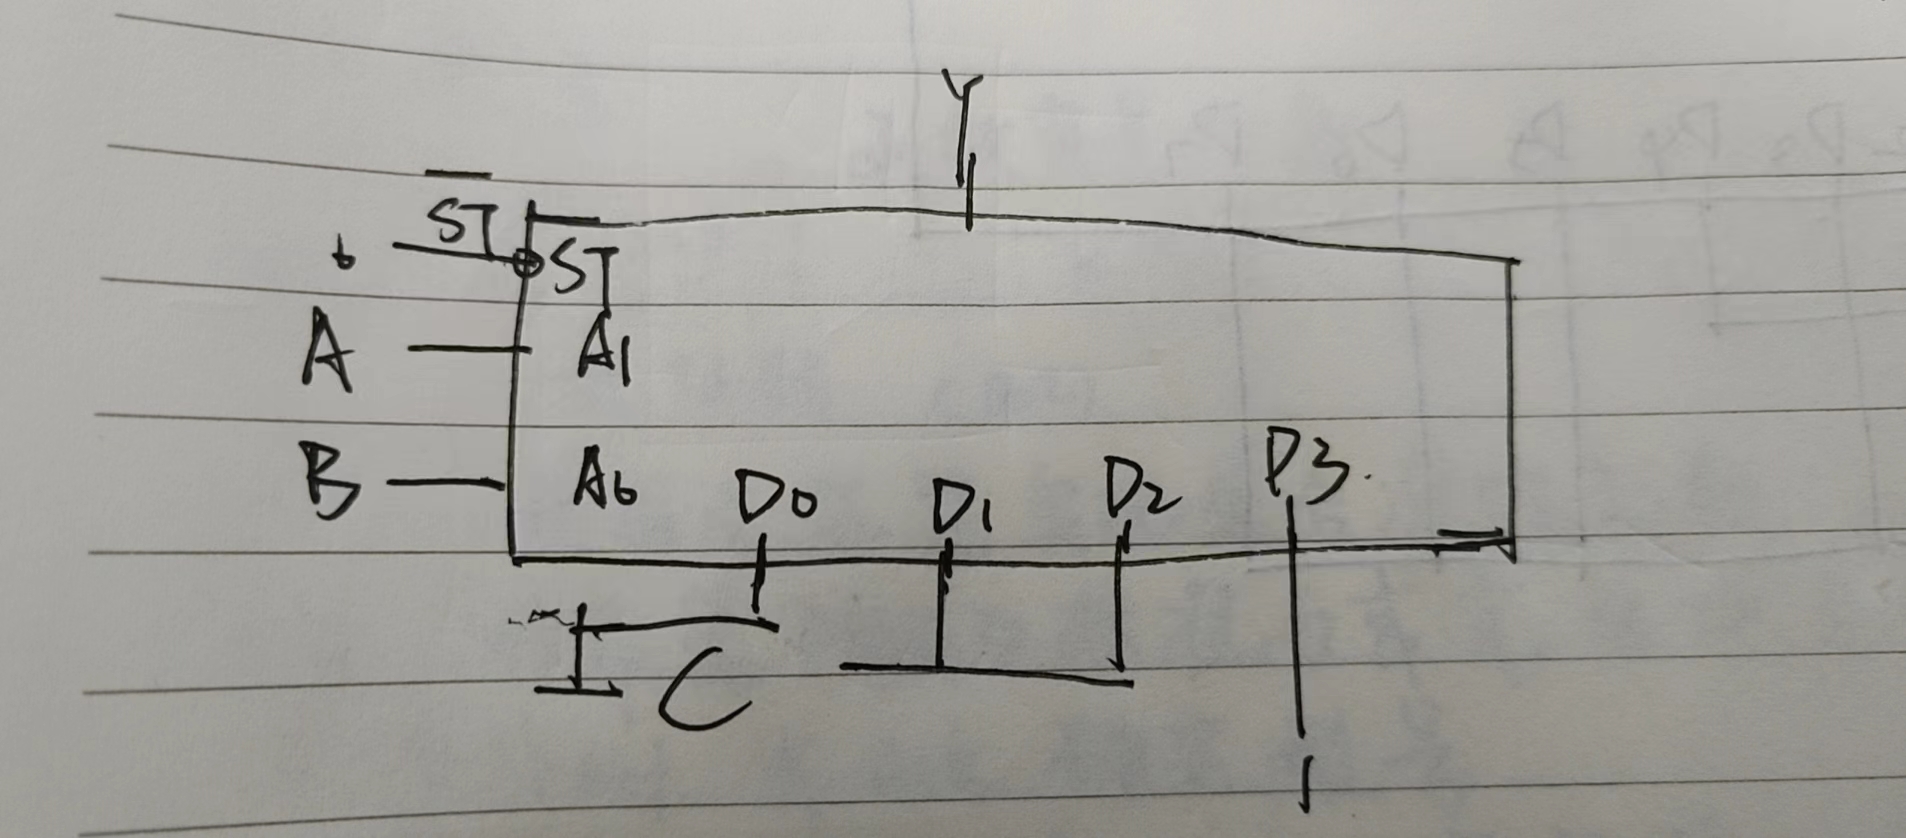 Y
ST
ST
A A1
B A0 D0 D1 D2 D3
C
1